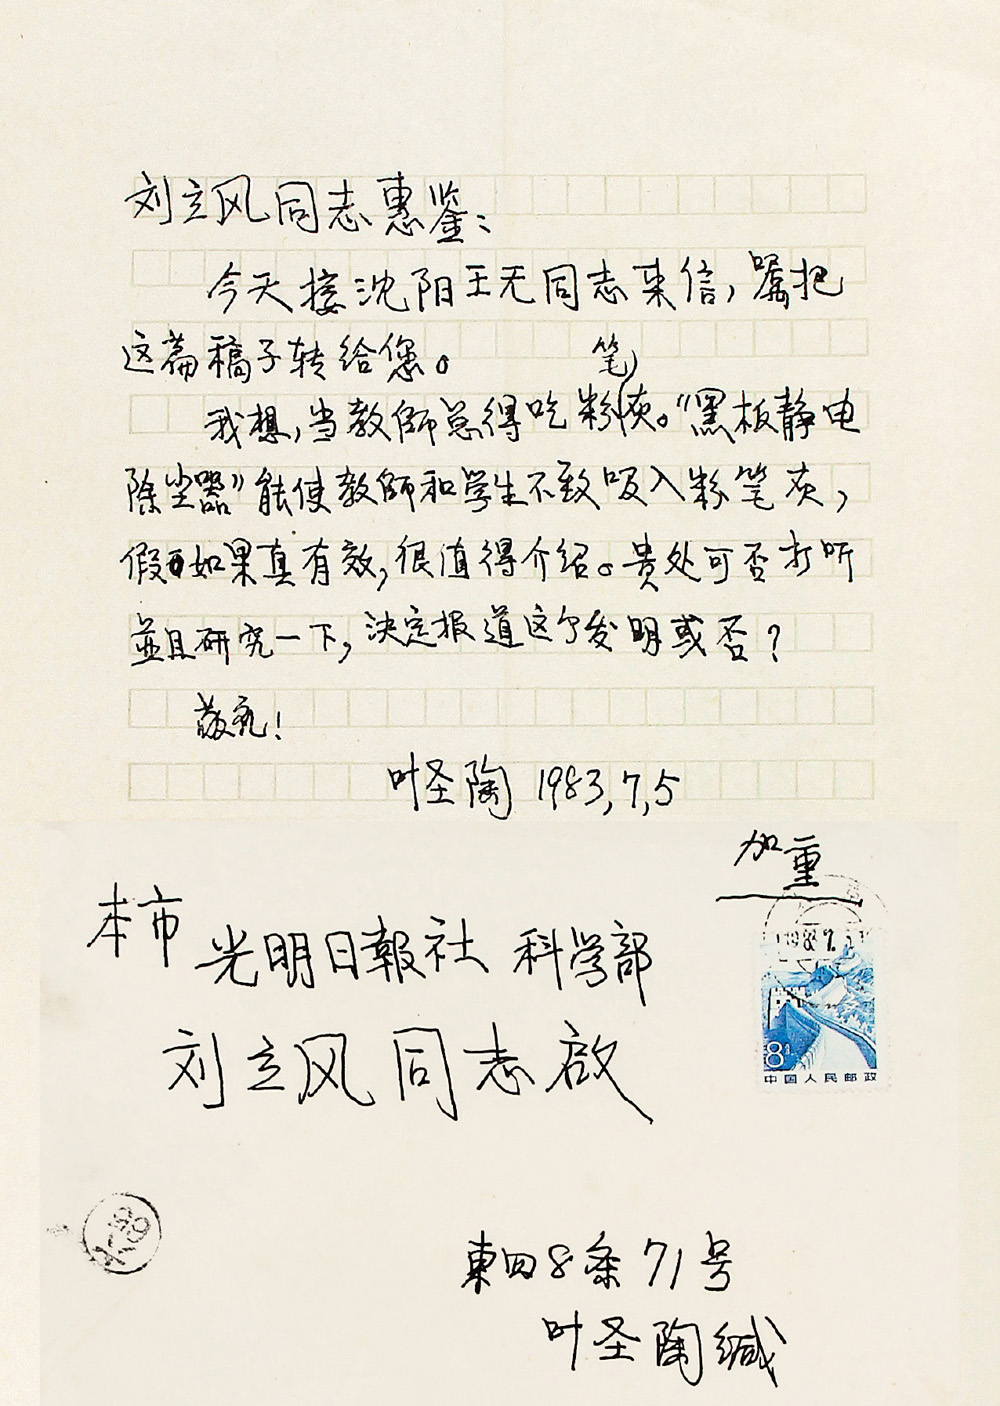 刘立风同志惠鉴：
今天接沈阳王无同志来信，嘱把
这篇稿子转给您。
我想，当教师总得吃粉笔灰。“黑板静电
除尘器”能使教师和学生不致吸入粉笔灰，
假如果真有效，很值得介绍。贵处可否打听
並且研究一下，决定报道这个发明或否？
敬礼！
叶圣陶 1983,7,5
加重
本市 光明日報社 科学部
刘立风同志啟
8分
中国人民邮政
東四8条71号
叶圣陶缄